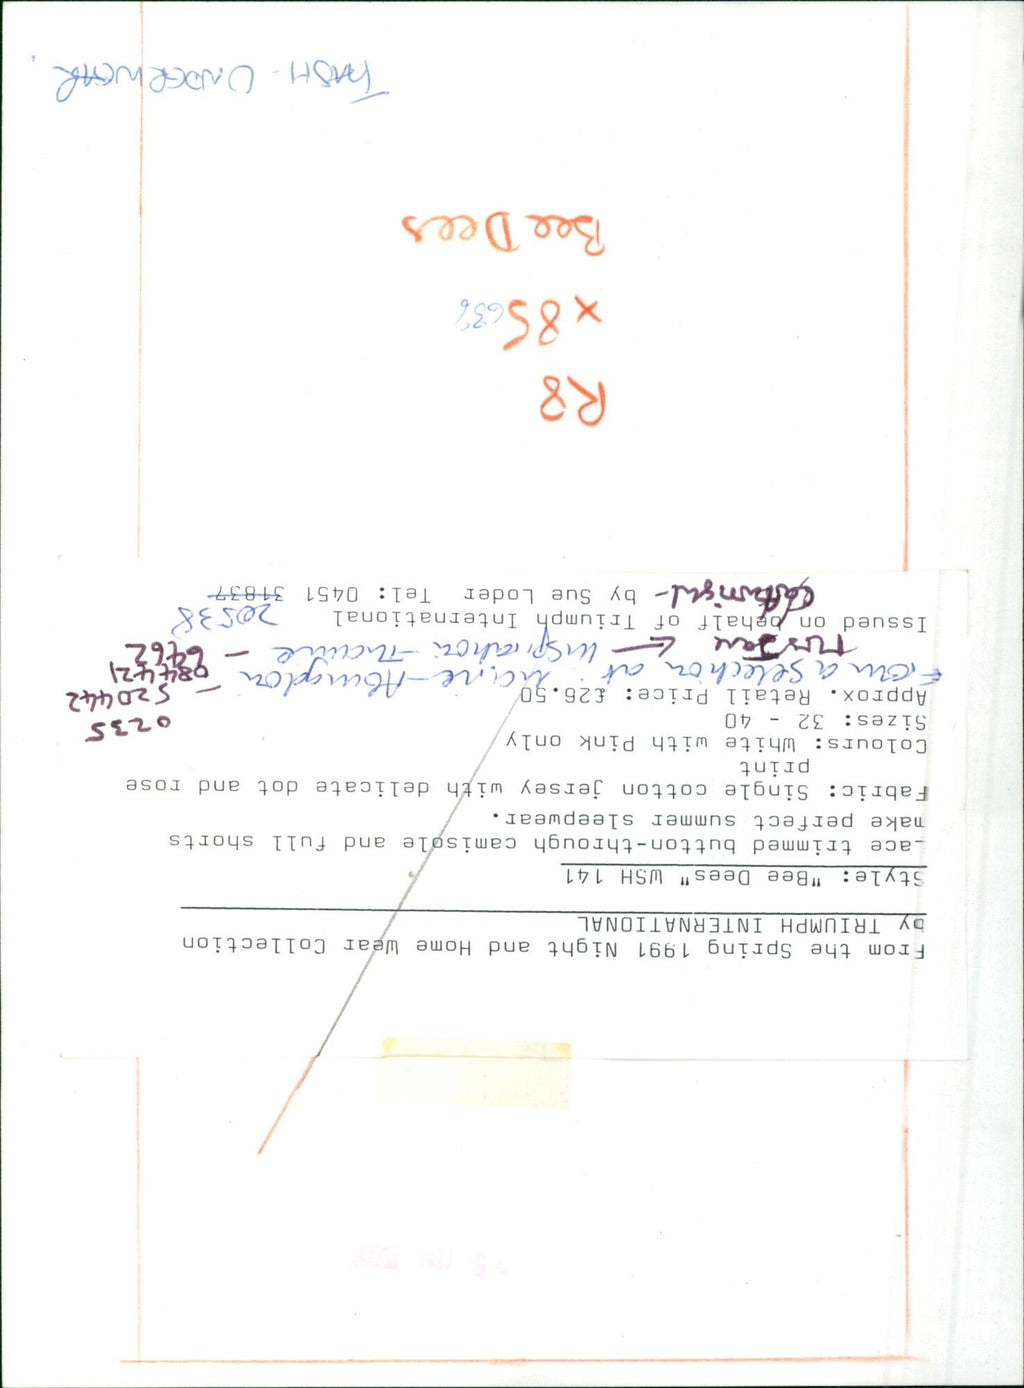 From the Spring 1991 Night and Home Wear Collection
by TRIUMPH INTERNATIONAL
Style: "Bee Dees" WSH 141
ace trimmed button-through camisole and full shorts
make perfect summer sleepwear.
Fabric: Single cotton jersey with delicate dot and rose
print
Colours: White with Pink only
Sizes: 32 - 40
Approx. Retail Price: £26.50
0235
520442
From a selection at: - Abingdon -
084421
Inspiration - Thame - 6462
Issued on behalf of Triumph International 20538
by Sue Loder Tel: 0451 31837
R8
x 85
63%
Bee Dees
FASH - UNDERWEAR